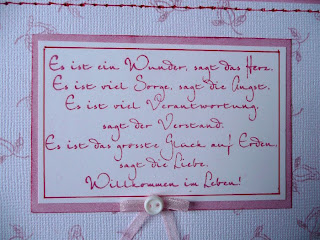 Es ist ein Wunder, sagt das Herz.
Es ist viel Sorge, sagt die Angst.
Es ist viel Verantwortung,
sagt der Verstand.
Es ist das grösste Glück auf Erden,
sagt die Liebe.
Willkommen im Leben!